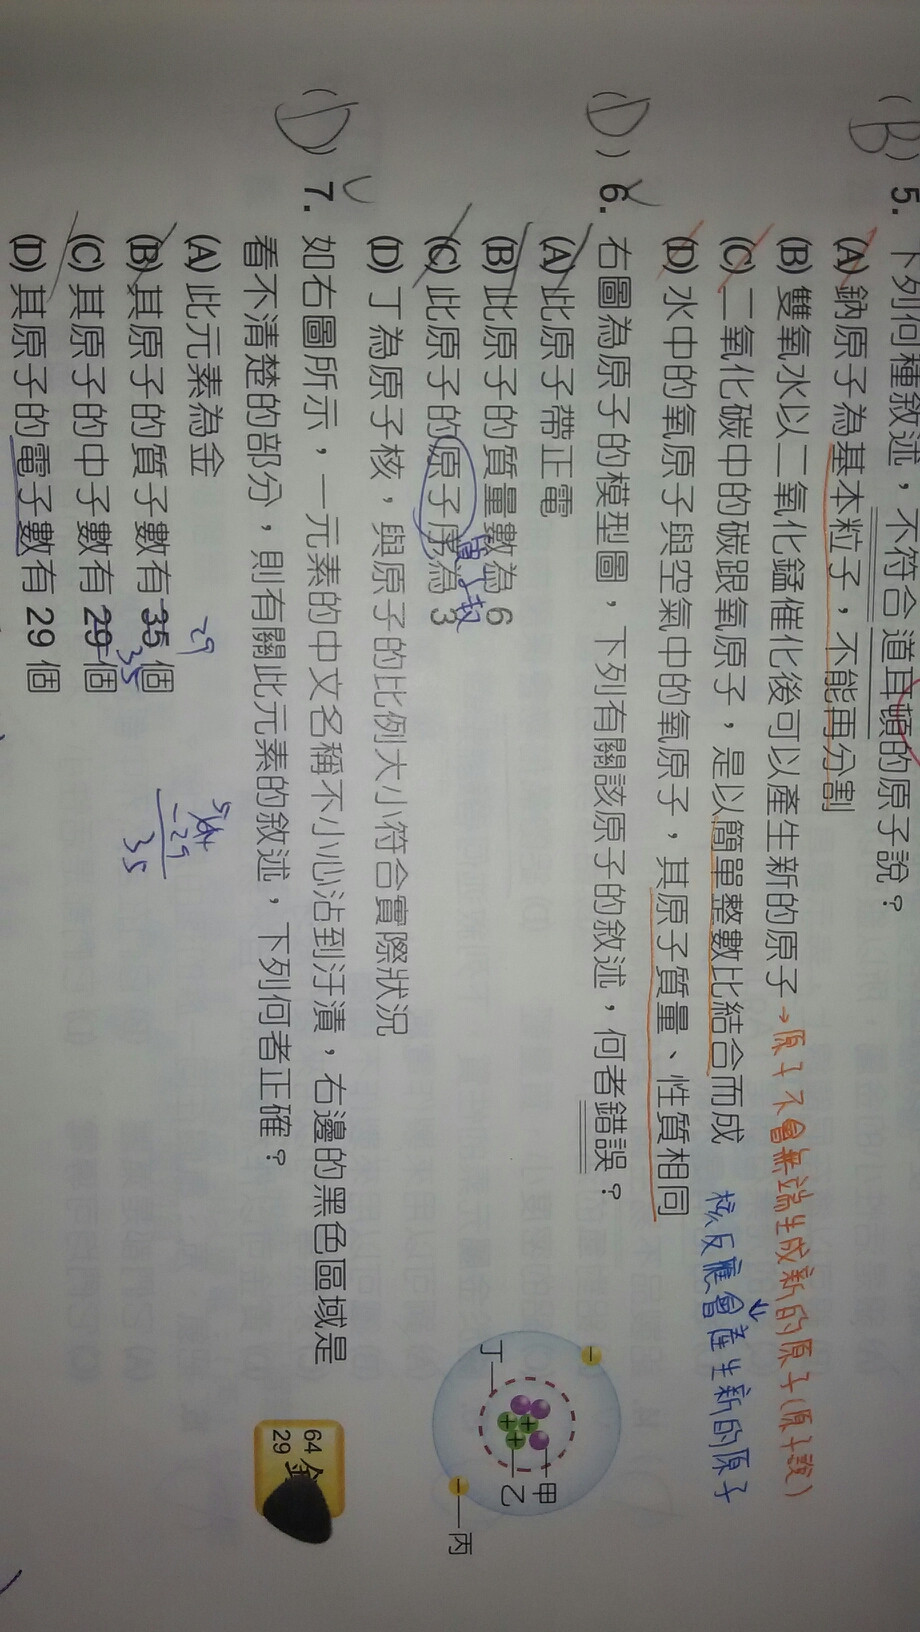 (B) 5. 下列何種敘述，不符合道耳頓的原子說？
(A) 鈉原子為基本粒子，不能再分割
(B) 雙氧水以二氧化錳催化後可以產生新的原子 →原子不會無端生成新的原子(原子說)
(C) 二氧化碳中的碳跟氧原子，是以簡單整數比結合而成
核反應會產生新的原子
(D) 水中的氧原子與空氣中的氧原子，其原子質量、性質相同
(D) 6. 右圖為原子的模型圖，下列有關該原子的敘述，何者錯誤？
(A) 此原子帶正電
(B) 此原子的質量數為 6
(C) 此原子的原子序為 3
質子數
(D) 丁為原子核，與原子的比例大小符合實際狀況
丁
甲
乙
丙
(D) 7. 如右圖所示，一元素的中文名稱不小心沾到汙漬，右邊的黑色區域是
看不清楚的部分，則有關此元素的敘述，下列何者正確？
64
29
(A) 此元素為金
(B) 其原子的質子數有 35 個
29
(C) 其原子的中子數有 29 個
35
(D) 其原子的電子數有 29 個
64
-29
35